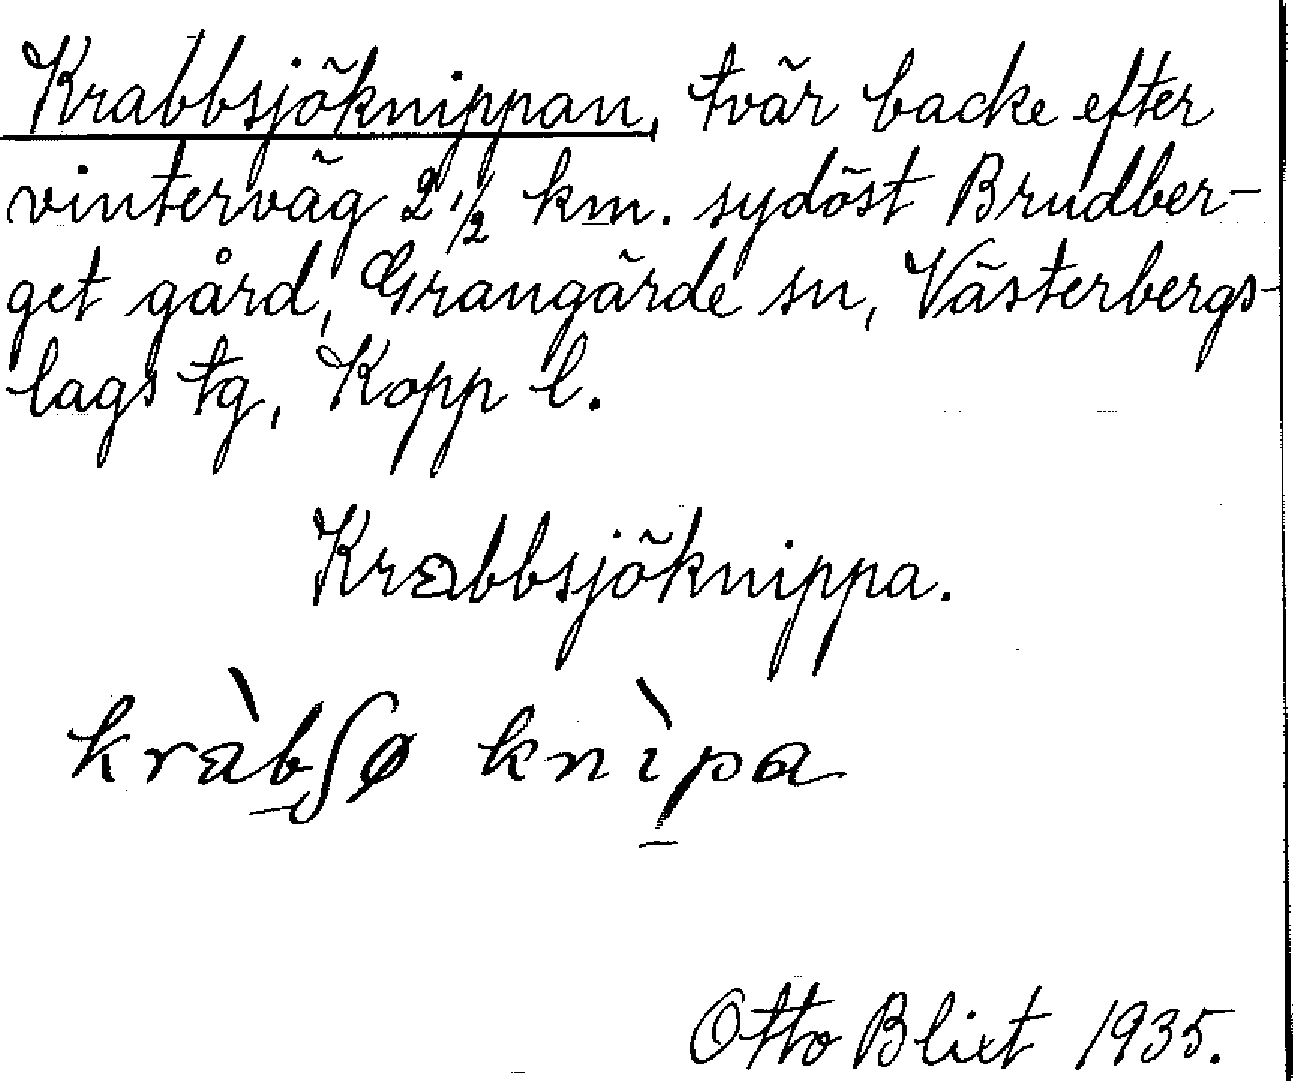 Krabbsjöknippan, tvär backe efter
vinterväg 2 1/2 km. sydöst Brudber-
get gård, Grangärde sn, Västerbergs-
lags tg, Kopp l.
Krabbsjöknippa.
kràbʃø knìpa
Otto Blixt 1935.